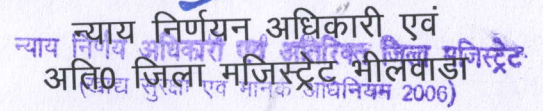 न्याय निर्णयन अधिकारी एवं
न्याय निर्णय अधिकारी एवं अतिरिक्त जिला मजिस्ट्रेट
अति0 ज़िला मजिस्ट्रेट भीलवाडा
(खाद्य सुरक्षा एवं मानक अधिनियम 2006)